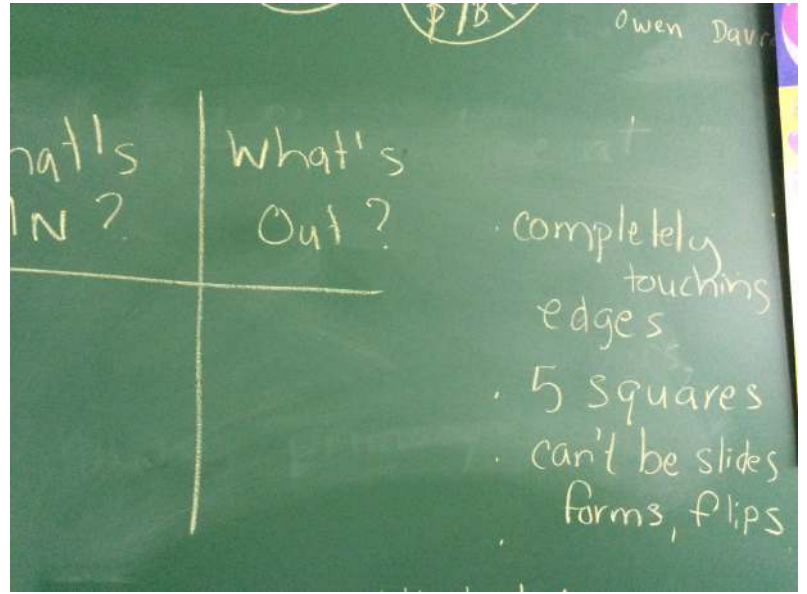 Owen
hat's
IN?
What's
Out?
· completely
touching
edges
· 5 squares
· can't be slides
forms, flips
·